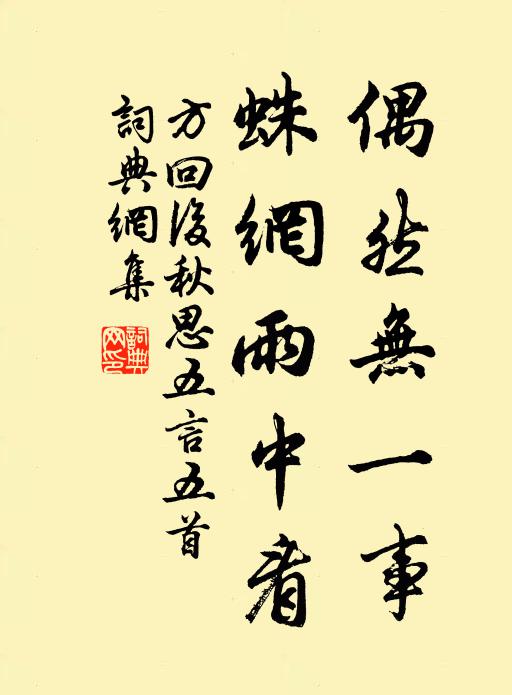 偶然無一事
蛛網雨中看
方回後秋思五言五首
詞典網集
詞典網印